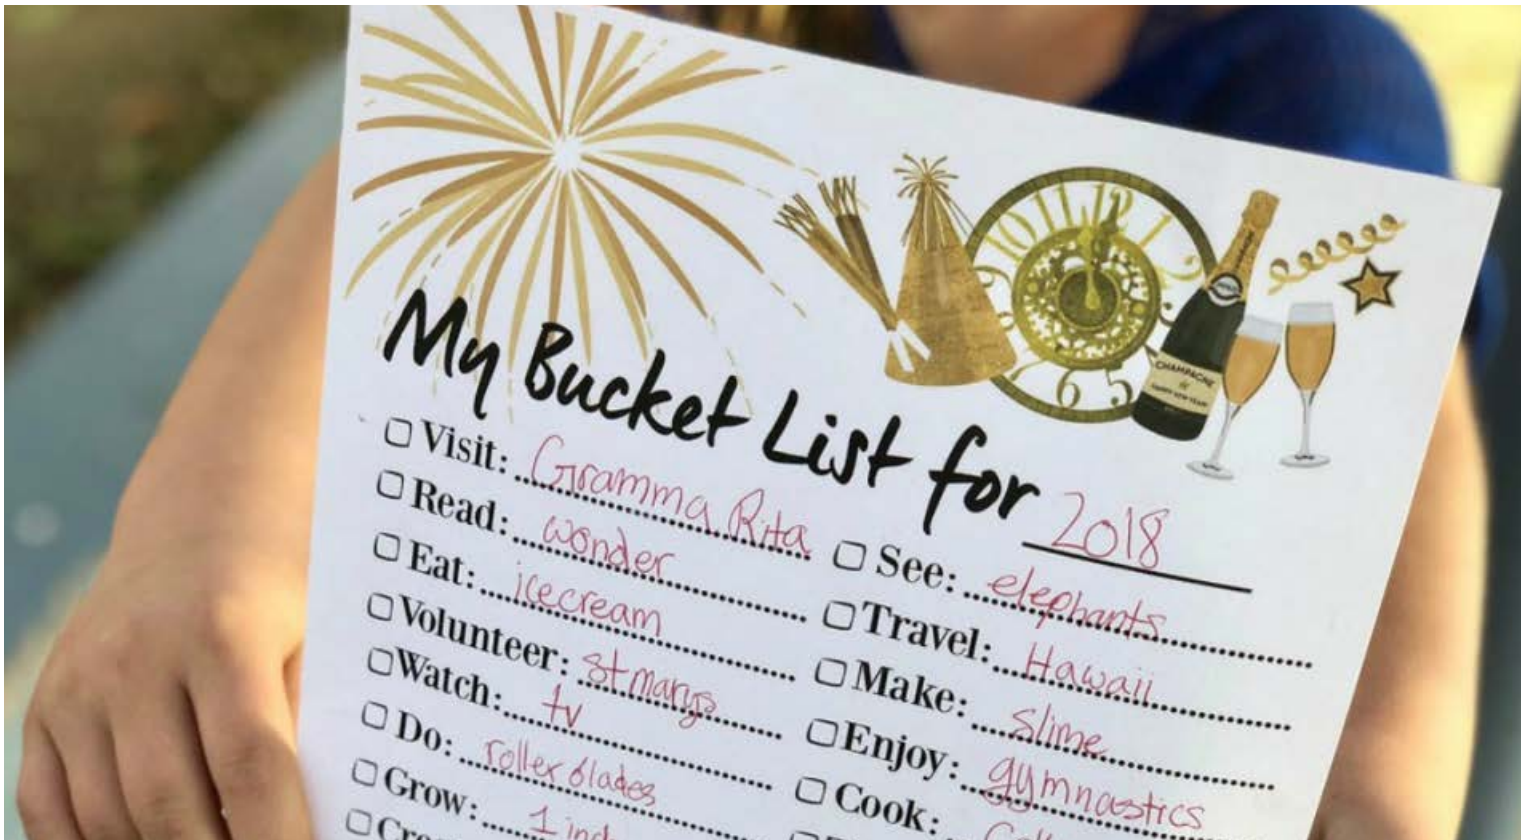 CHAMPAGNE
HAPPY NEW YEAR
My Bucket List for 2018
Visit: Gramma Rita
Read: wonder
Eat: icecream
Volunteer: St marys
Watch: tv
Do: roller blades
Grow: 1 inch
See: elephants
Travel: Hawaii
Make: slime
Enjoy: gymnastics
Cook: